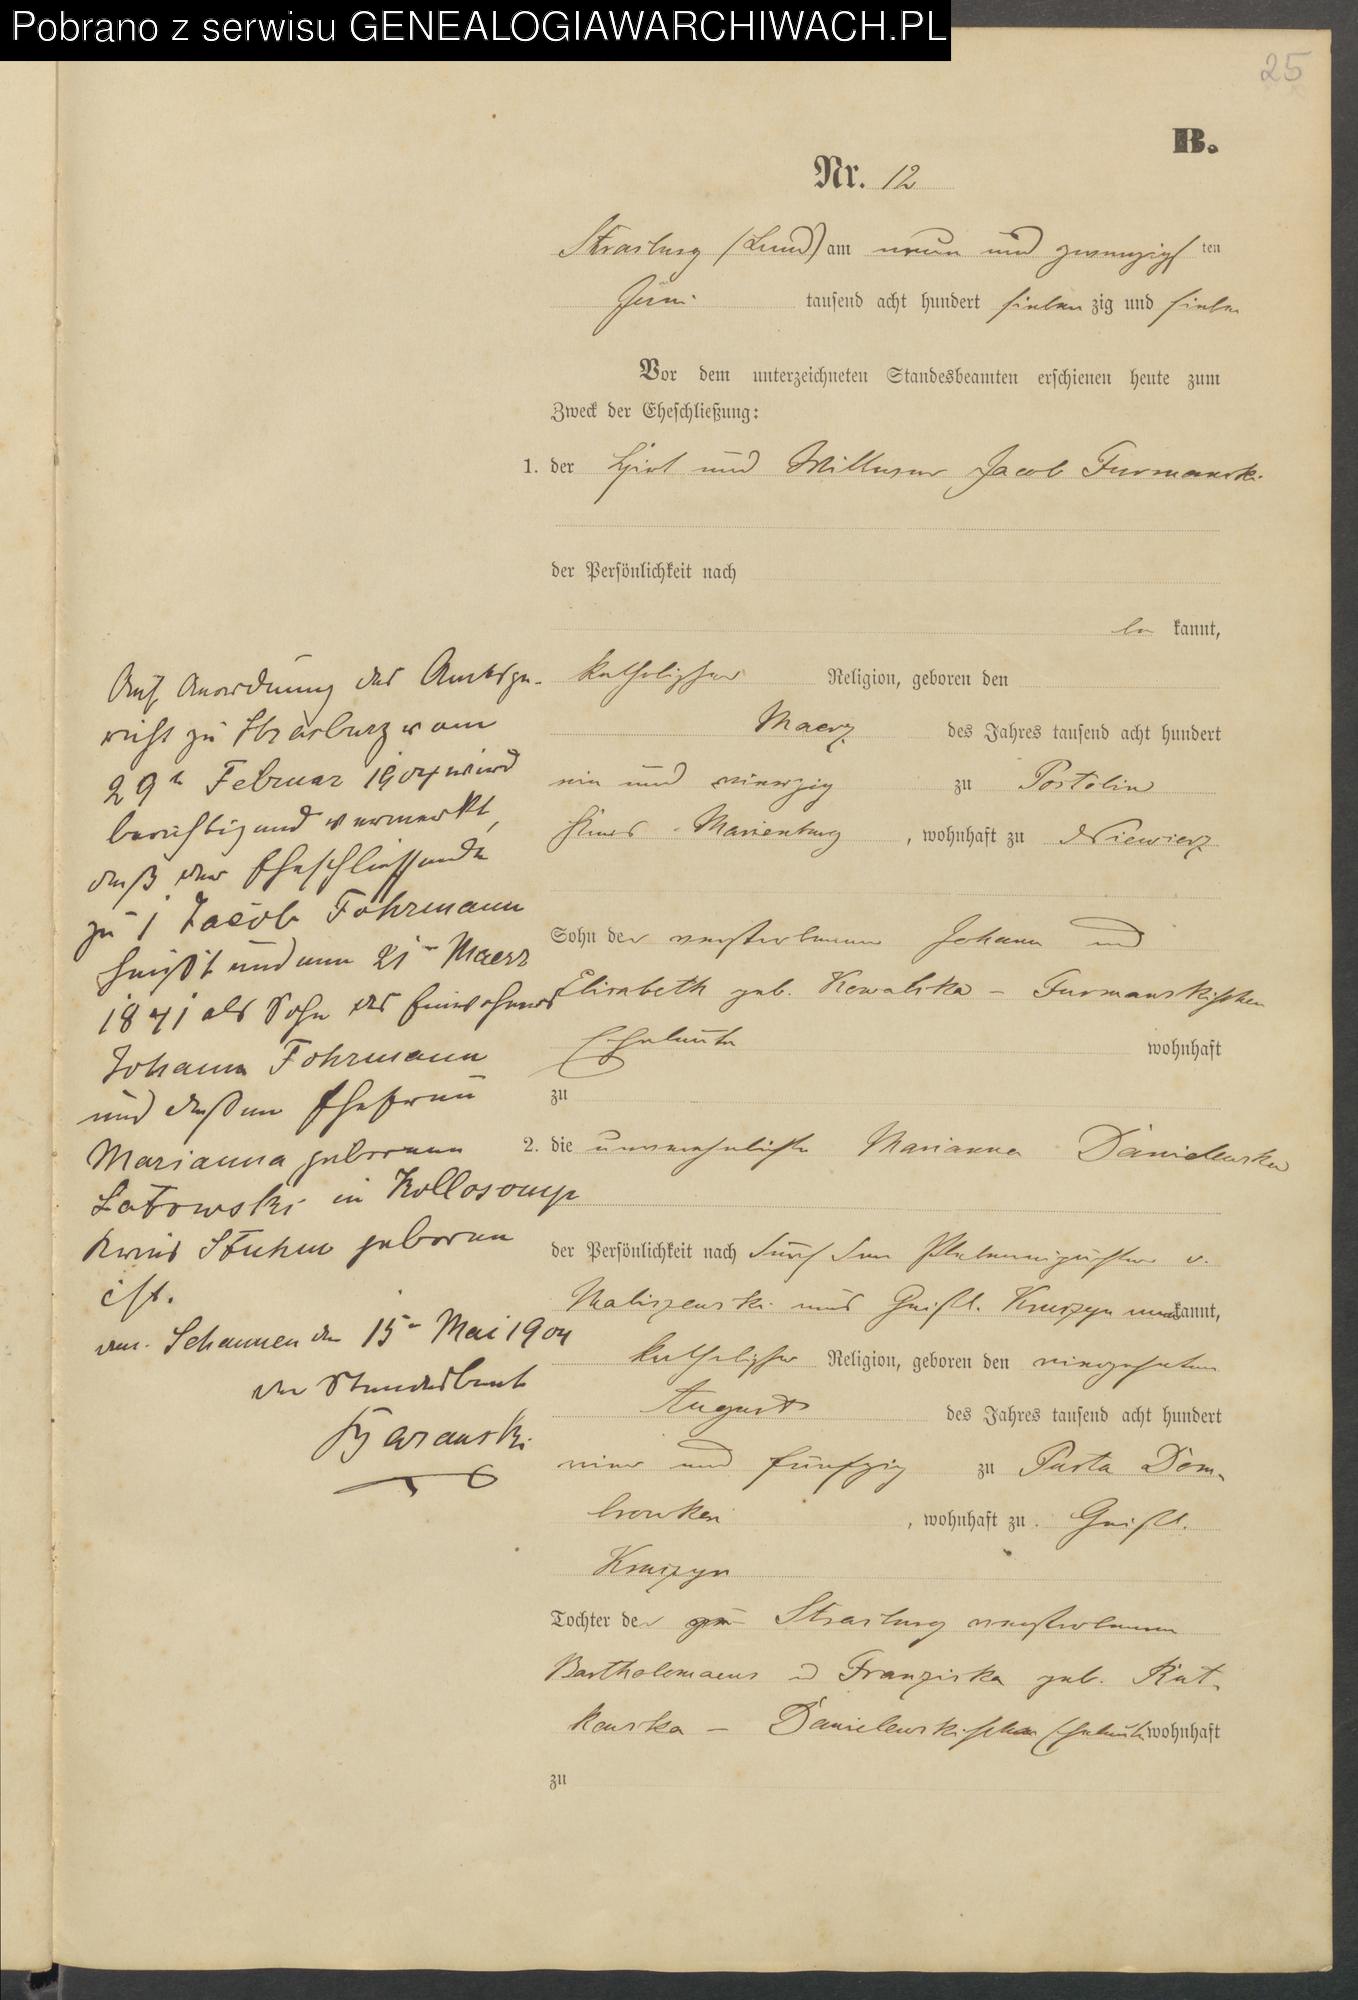 Pobrano z serwisu GENEALOGIAWARCHIWACH.PL
25
B.
Nr. 12
Strasburg (Land) am neun und zwanzigsten
Juni tausend acht hundert sieben zig und sieben
Vor dem unterzeichneten Standesbeamten erschienen heute zum
Zweck der Eheschließung:
1. der Hirt und Wittwer Jacob Furmanski
der Persönlichkeit nach
be kannt,
katholischer Religion, geboren den
Maerz des Jahres tausend acht hundert
ein und vierzig zu Postolin
Kreis Marienburg, wohnhaft zu Niewierz
Sohn der verstorbenen Johann und
Elisabeth geb. Kowalska - Furmanskischen
Eheleute wohnhaft
zu
2. die unverehelichte Marianna Danielewska
der Persönlichkeit nach durch den v.
Maliszewski aus Geistl. Kruszyn aner kannt,
katholischer Religion, geboren den vierzehnten
August des Jahres tausend acht hundert
vier und fünfzig zu Pusta Dom-
browken, wohnhaft zu Geistl.
Kruszyn
Tochter der zu Strasburg verstorbenen
Bartholomaeus u Franziska geb. Rut-
kowska - Danielewskischen Eheleute wohnhaft
zu
Auf Anordnung des Amtsge-
richt zu Strasburg vom
29n Februar 1904 wird
berichtigend vermerkt,
daß der Eheschliessende
zu 1 Jacob Fohrmann
heißt und am 21n Maerz
1841 als Sohn des Einwohners
Johann Fohrmann
und dessen Ehefrau
Marianna geborenen
Latowski in Kollosomp
Kreis Stuhm geboren
ist.
Schannen den 15n Mai 1904
Der Standesbeamte